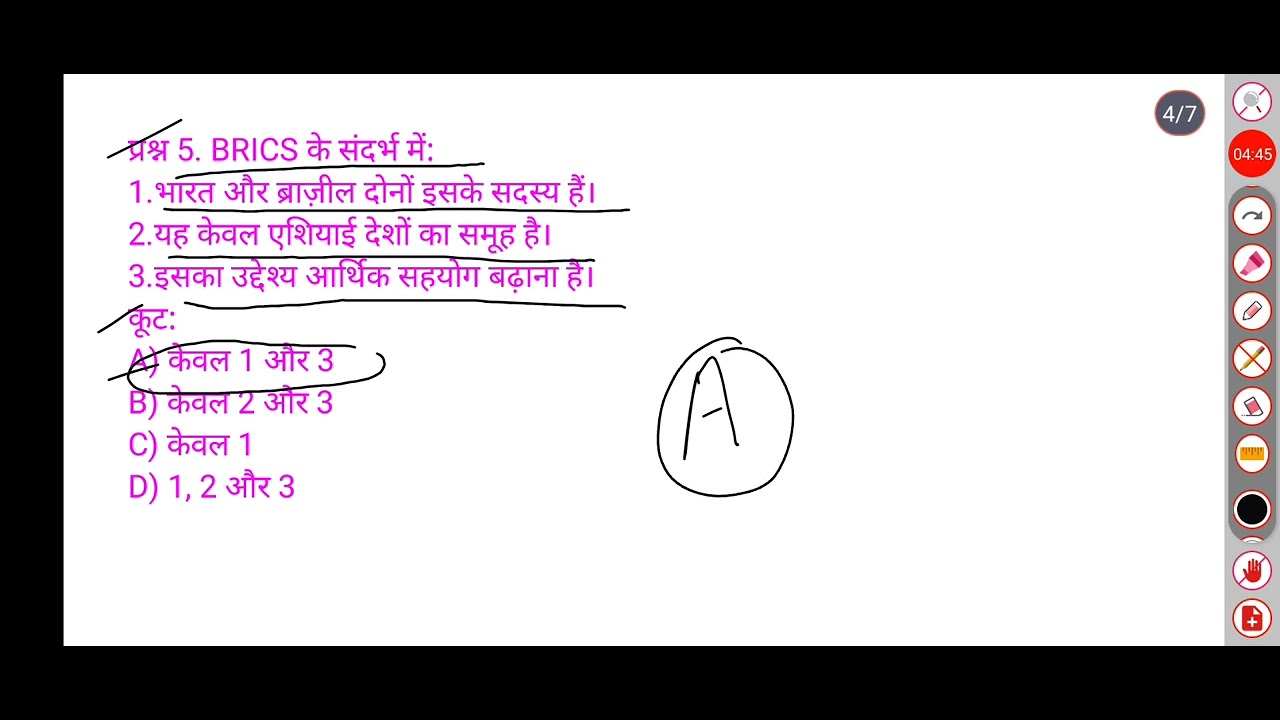 4/7
04:45
प्रश्न 5. BRICS के संदर्भ में:
1.भारत और ब्राज़ील दोनों इसके सदस्य हैं।
2.यह केवल एशियाई देशों का समूह है।
3.इसका उद्देश्य आर्थिक सहयोग बढ़ाना है।
कूट:
A) केवल 1 और 3
B) केवल 2 और 3
C) केवल 1
D) 1, 2 और 3
A